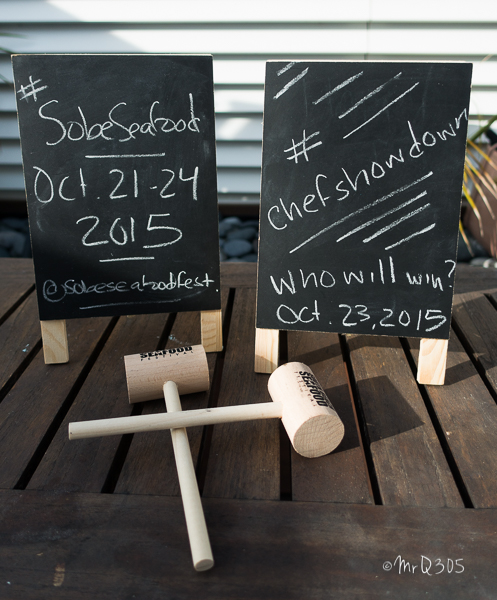 #
SobeSeafood
Oct. 21-24
2015
@sobeseafoodfest.
#
chefshowdown
who will win?
Oct. 23, 2015
SEAFOOD
SEAFOOD
©MrQ305